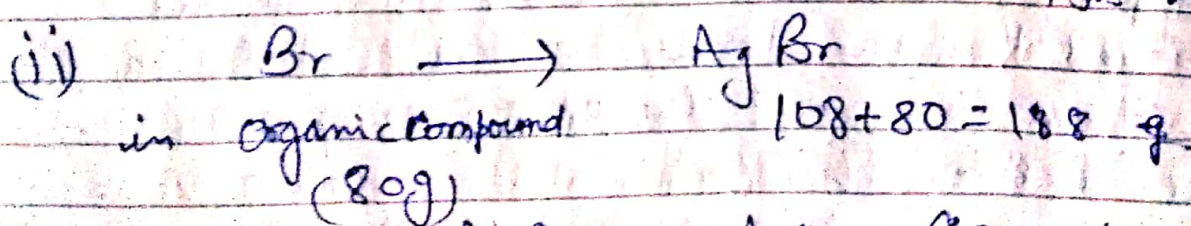 (ii) Br ⟶ Ag Br
in organic compound 108+80=188 g
(80g)